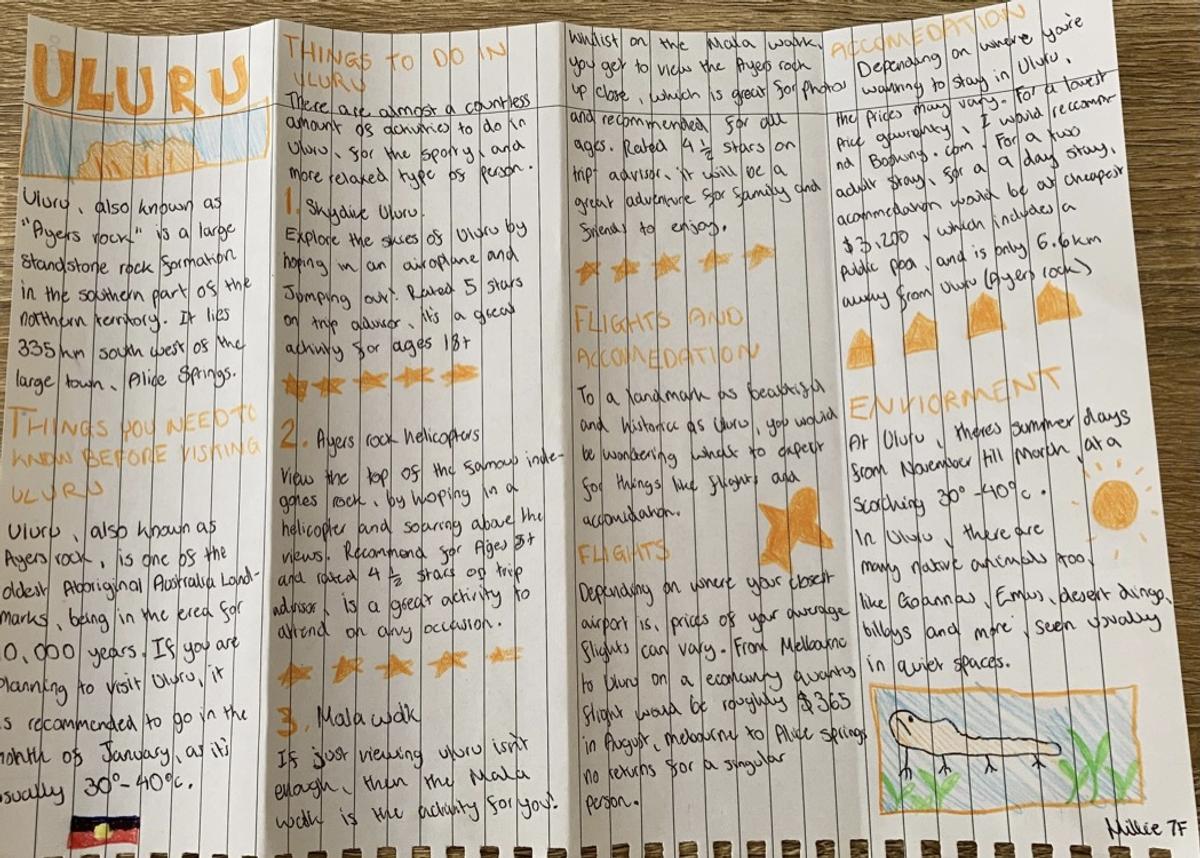 ULURU
Uluru, also known as
"Ayers rock" is a large
standstone rock formation
in the southern part of the
northern territory. It lies
335km south west of the
large town, Alice Springs.
THINGS YOU NEED TO
KNOW BEFORE VISITING
ULURU
Uluru, also known as
Ayers rock, is one of the
oldest Aboriginal Australia Land-
marks, being in the ered for
0,000 years. If you are
planning to visit Uluru, it
s recommended to go in the
month of January, as it's
usually 30°-40°c.
THINGS TO DO IN
ULURU
There are almost a countless
amount of activities to do in
Uluru, for the sporty, and
more relaxed type of person.
1. Skydive Uluru.
Explore the skies of Uluru by
hoping in an airoplane and
Jumping out! Rated 5 stars
on trip advisor, it's a great
activity for ages 18+
2. Ayers rock helicopters
View the top of the famous inde-
genes rock, by hoping in a
helicopter and soaring above the
views. Recommend for Ages 3+
and rated 4 ½ stars on trip
advisor, is a great activity to
attend on any occasion.
3. Mala walk
If just viewing uluru isn't
enough, then the Mala
walk is the activity for you!
whilst on the Mala walk,
you get to view the Ayers rock
up close, which is great for photos
and recommended for all
ages. Rated 4 ½ stars on
trip advisor, it will be a
great adventure for family and
friends to enjoy.
FLIGHTS AND
ACCOMEDATION
To a landmark as beautiful
and historica as Uluru, you would
be wondering what to expect
for things like flights and
accomidation.
FLIGHTS
Depending on where your closest
airport is, prices of your average
flights can vary. From Melbourne
to Uluru on a economy quantas
flight would be roughly $365
in August, melbourne to Alice springs
no returns for a singular
person.
ACCOMEDATION
Depending on where you're
wanning to stay in Uluru,
the prices may vary. For a lowest
price gauranty, I would reccomm-
nd Booking.com. For a two
adult stay, for a a day stay,
acommedation would be at cheapest
$3,200, which includes a
public pool, and is only 6.6km
away from Uluru (Ayers rock)
ENVIORMENT
At Uluru, theres summer days
from November till March, at a
scorching 30°-40°c.
In Uluru, there are
many native animals too,
like Goannas, Emus, desert dingo,
bilbys and more, seen usually
in quiet spaces.
Millie 7F